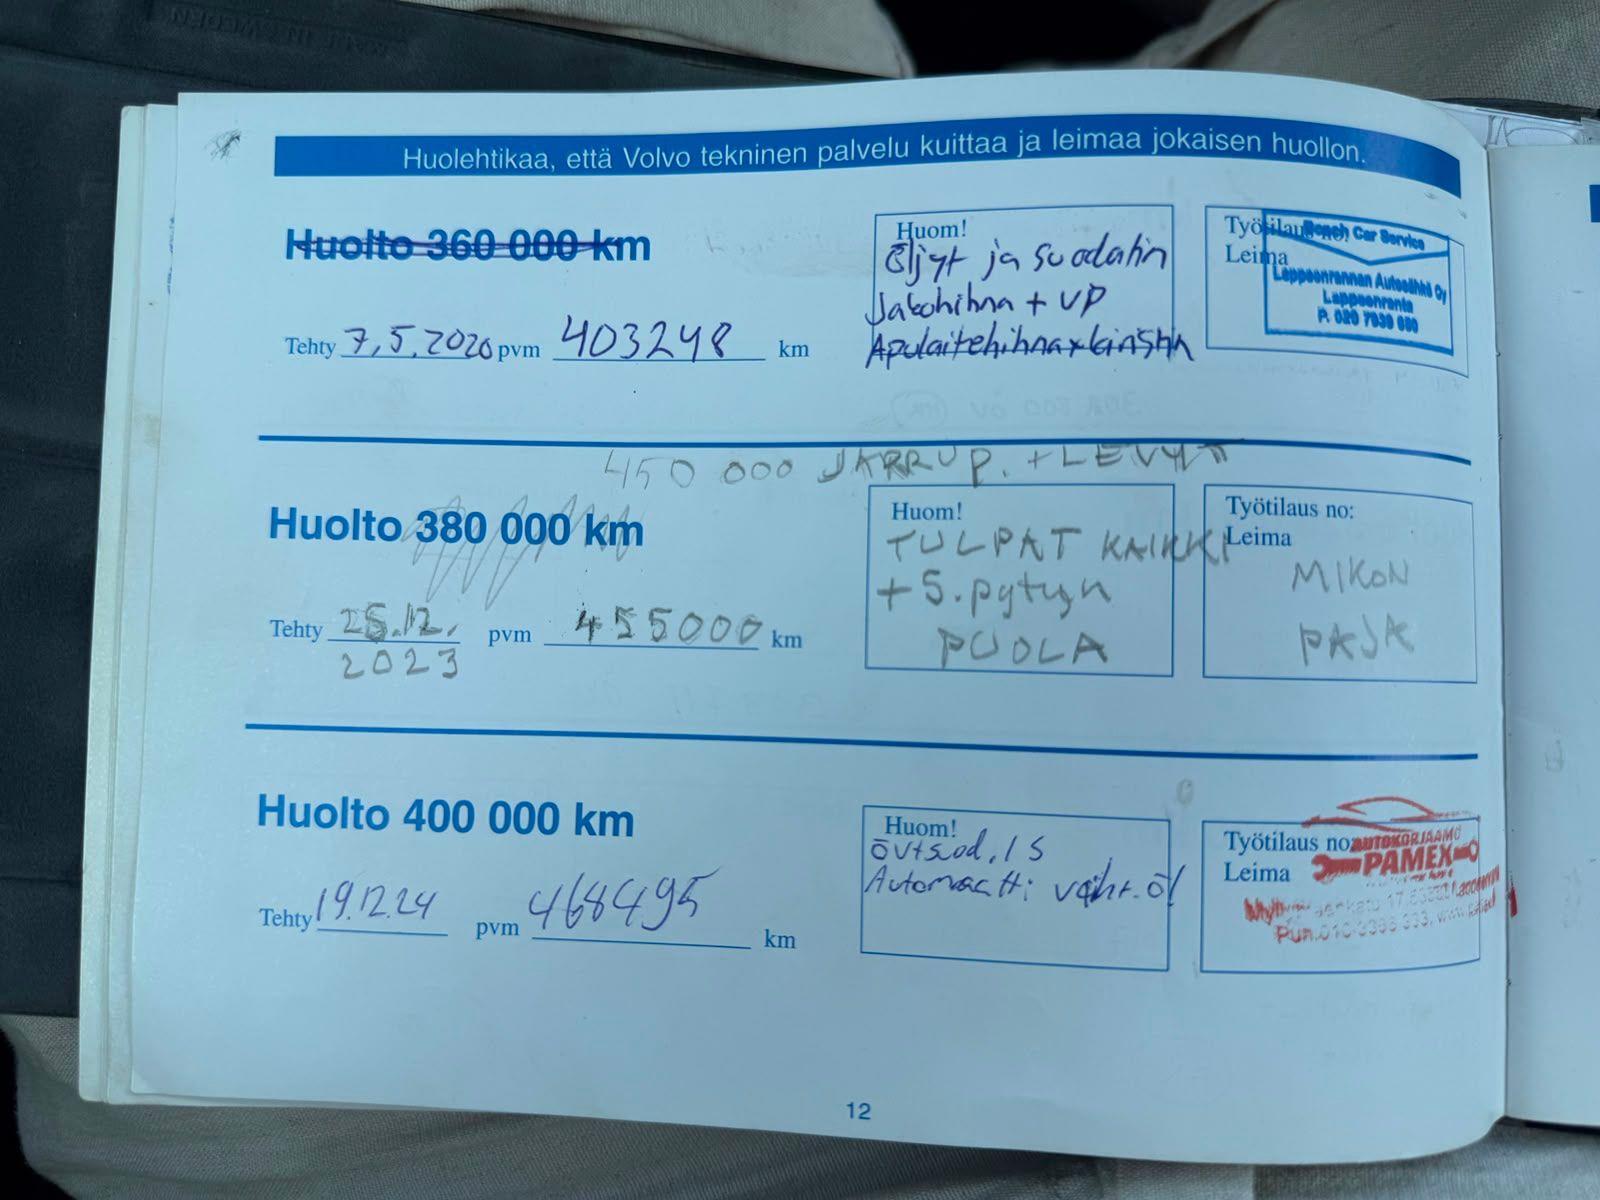 Huolehtikaa, että Volvo tekninen palvelu kuittaa ja leimaa jokaisen huollon.
Huolto 360 000 km
Tehty 7.5.2020 pvm 403248 km
Huom!
Öljyt ja suodatin
Jakohihna + VP
Apulaitehihna + kiristin
Työtilaus no:
Leima
Bosch Car Service
Lappeenrannan Autosähkö Oy
Lappeenranta
P. 020 7939 680
450 000 JARRUP. + LEVYT
Huolto 380 000 km
Tehty 25.12. pvm 455000 km
2023
Huom!
TULPAT KAIKKI
+ 5. pytyn
PUOLA
Työtilaus no:
Leima
MIKON
PAJA
Huolto 400 000 km
Tehty 19.12.24 pvm 468495 km
Huom!
Automaatti vaiht. öl
Työtilaus no
Leima
AUTOKORJAAMO
PAMEX
12